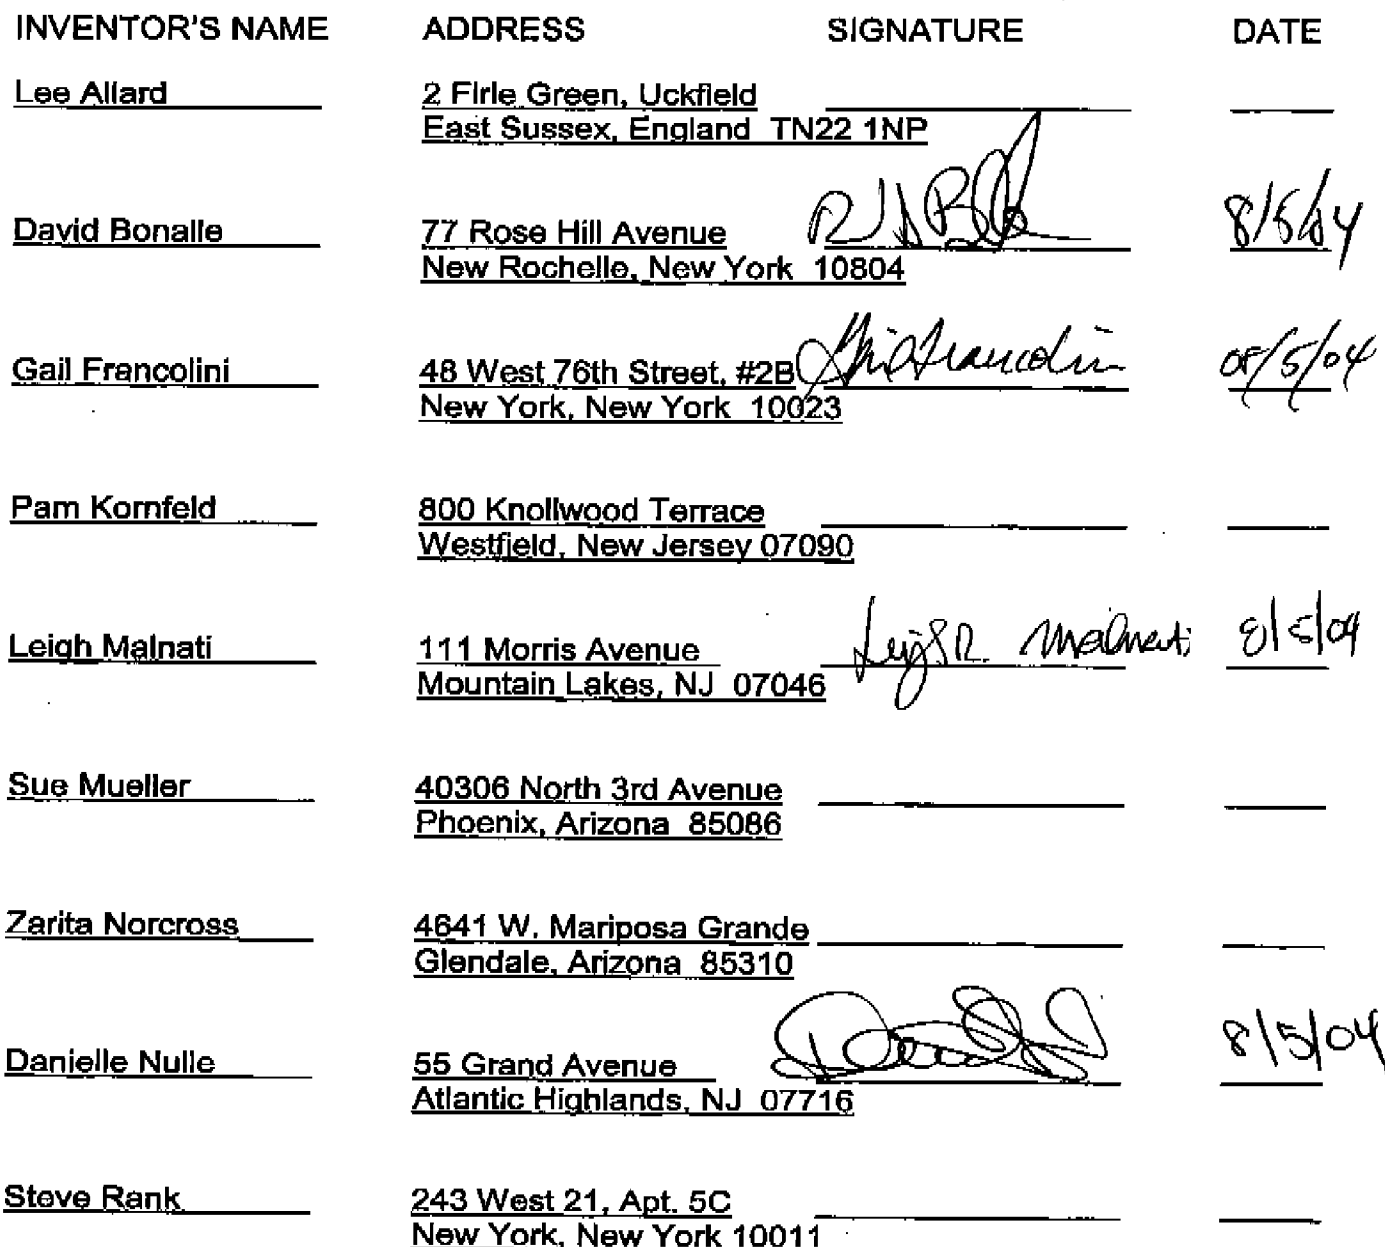 INVENTOR'S NAME ADDRESS SIGNATURE DATE
Lee Allard 2 Firle Green, Uckfield
East Sussex, England TN22 1NP
David Bonalle 77 Rose Hill Avenue 8/5/04
New Rochelle, New York 10804
Gail Francolini 48 West 76th Street, #2B Gail Francolini 08/5/04
New York, New York 10023
Pam Kornfeld 800 Knollwood Terrace
Westfield, New Jersey 07090
Leigh Malnati 111 Morris Avenue Leigh R. Malnati 8/5/04
Mountain Lakes, NJ 07046
Sue Mueller 40306 North 3rd Avenue
Phoenix, Arizona 85086
Zarita Norcross 4641 W. Mariposa Grande
Glendale, Arizona 85310
Danielle Nulle 55 Grand Avenue 8/5/04
Atlantic Highlands, NJ 07716
Steve Rank 243 West 21, Apt. 5C
New York, New York 10011